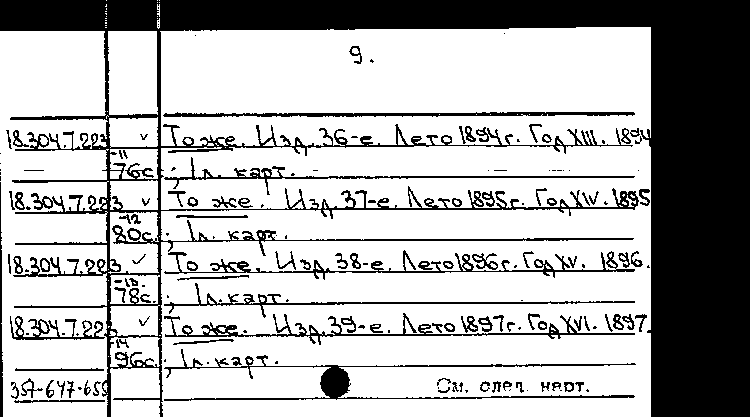 9.
18.304.7.223 ✓ То же. Изд. 36-е. Лето 1894г. Год XIII. 1894
-11
76с.; 1л. карт.
18.304.7.223 ✓ То же. Изд. 37-е. Лето 1895г. Год XIV. 1895
-12
80с.; 1л. карт.
18.304.7.223 ✓ То же. Изд. 38-е. Лето 1896г. Год XV. 1896.
-13
78с.; 1л. карт.
18.304.7.223 ✓ То же. Изд. 39-е. Лето 1897г. Год XVI. 1897.
-14
96с.; 1л. карт.
357-647-655 См. след. карт.